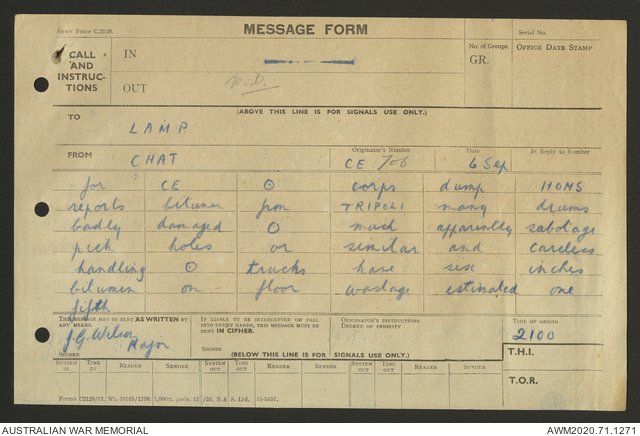 Army Form C2128.
MESSAGE FORM
Serial No.
CALL AND INSTRUCTIONS
IN
No. of Groups.
GR.
OFFICE DATE STAMP
OUT
P.D.
(ABOVE THIS LINE IS FOR SIGNALS USE ONLY.)
TO
LAMP
FROM
CHAT
Originator's Number
CE 706
Date
6 Sep
In Reply to Number
for CE O corps dump HOMS
reports bitumen from TRIPOLI many drums
badly damaged O much apparently sabotage
pick holes or similar and careless
handling O trucks have six inches
bitumen on floor wastage estimated one
fifth
THIS MESSAGE MAY BE SENT AS WRITTEN BY ANY MEANS.
J.G. Wilson Major
SIGNED
IF LIABLE TO BE INTERCEPTED OR FALL INTO ENEMY HANDS, THIS MESSAGE MUST BE SENT IN CIPHER.
SIGNED
ORIGINATOR'S INSTRUCTIONS
DEGREE OF PRIORITY
TIME OF ORIGIN
2100
T.H.I.
T.O.R.
(BELOW THIS LINE IS FOR SIGNALS USE ONLY.)
SYSTEM IN
TIME IN
READER
SENDER
SYSTEM OUT
TIME OUT
READER
SENDER
SYSTEM OUT
TIME OUT
READER
SENDER
AUSTRALIAN WAR MEMORIAL
AWM2020.71.1271